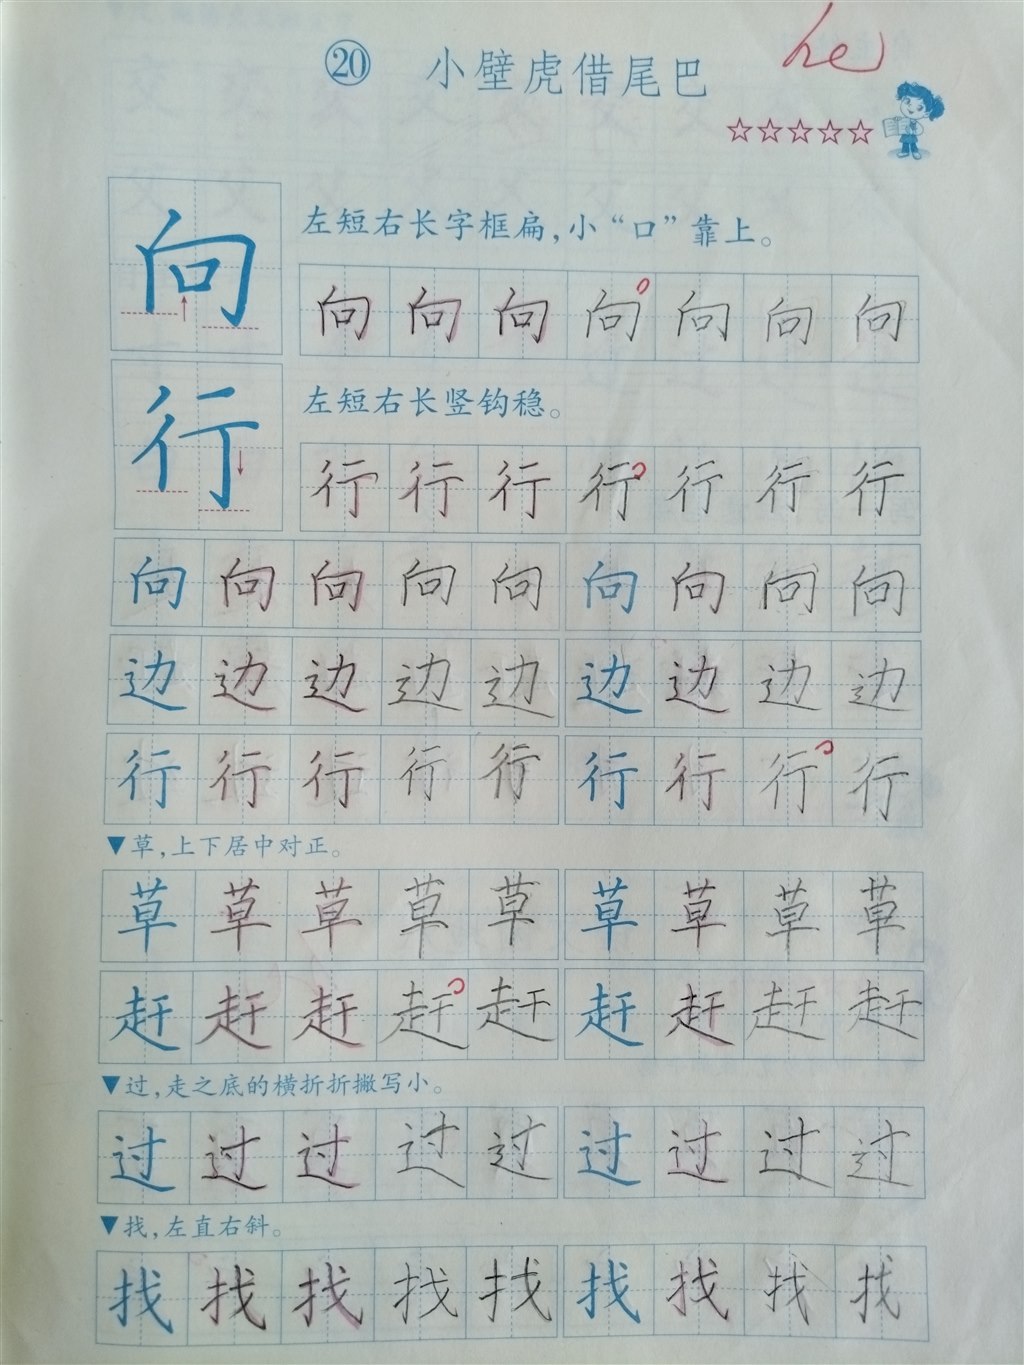 ⑳ 小壁虎借尾巴
he
向 左短右长字框扁，小“口”靠上。
向 向 向 向 向 向 向
行 左短右长竖钩稳。
行 行 行 行 行 行 行
向 向 向 向 向 向 向 向 向
边 边 边 边 边 边 边 边 边
行 行 行 行 行 行 行 行 行
▼草，上下居中对正。
草 草 草 草 草 草 草 草 草
赶 赶 赶 赶 赶 赶 赶 赶 赶
▼过，走之底的横折折撇写小。
过 过 过 过 过 过 过 过 过
▼找，左直右斜。
找 找 找 找 找 找 找 找 找